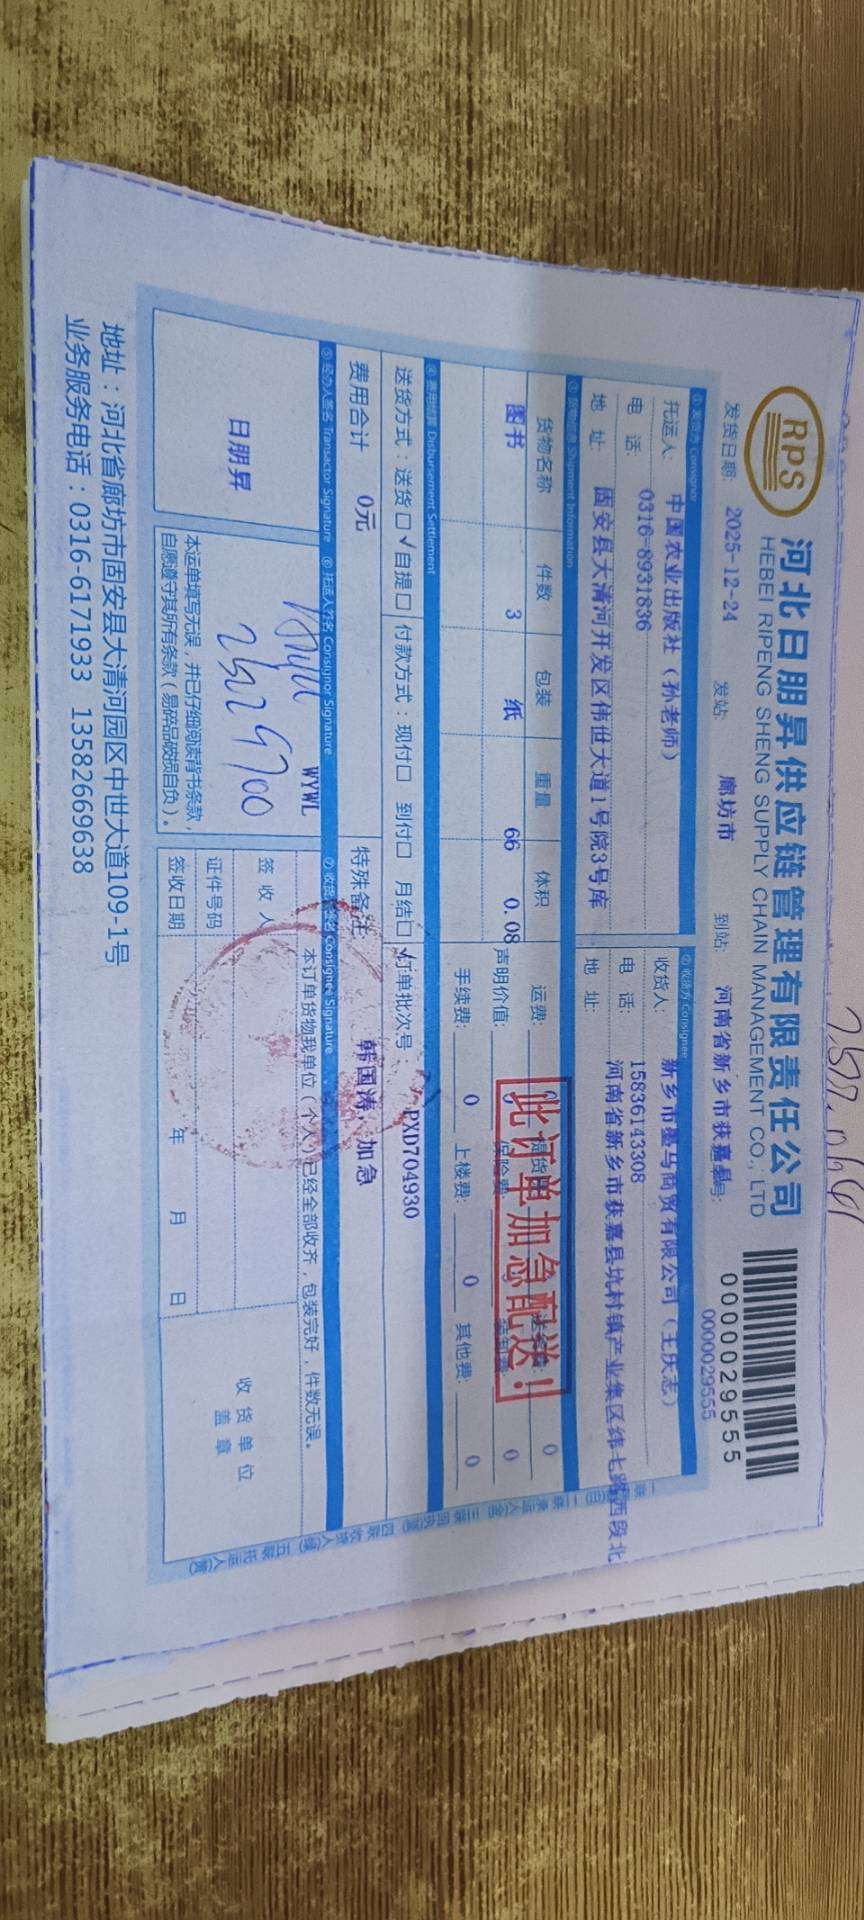 RPS
河北日朋昇供应链管理有限责任公司
HEBEI RIPENG SHENG SUPPLY CHAIN MANAGEMENT CO., LTD
0000029555
0000029555
发货日期: 2025-12-24 发站: 廊坊市 到站: 河南省新乡市获嘉县
① 发货方 Consignor
② 收货方 Consignee
托运人: 中国农业出版社（孙老师）
收货人: 新乡市墨马商贸有限公司（王庆志）
电 话: 0316-8931836
电 话: 15836143308
地 址: 固安县大清河开发区伟世大道1号院3号库
地 址: 河南省新乡市获嘉县亢村镇产业集区纬七路西段北
③ 货物信息 Shipment Information
货物名称 件数 包装 重量 体积
图书 3 纸 66 0.08
运费: 0
声明价值: 0
手续费: 0 上楼费: 0 其他费: 0
此订单加急配送!
④ 费用结算 Disbursement Settlement
送货方式：送货☐ ✓自提☐ 付款方式：现付☐ 到付☐ 月结☐✓
订单批次号: PXD704930
费用合计 0元
特殊备注: 韩国涛，加急
⑤ 经办人签名 Transactor Signature
⑥ 托运人签名 Consignor Signature
⑦ 收货人签名 Consignee Signature
日朋昇
WYWL
本运单填写无误，并已仔细阅读背书条款，
自愿遵守其所有条款（易碎品破损自负）。
本订单货物我单位（个人）已经全部收齐，包装完好，件数无误。
签 收 人
证件号码
签收日期 年 月 日
收 货 单 位
盖 章
地址：河北省廊坊市固安县大清河园区中世大道109-1号
业务服务电话：0316-6171933 13582669638